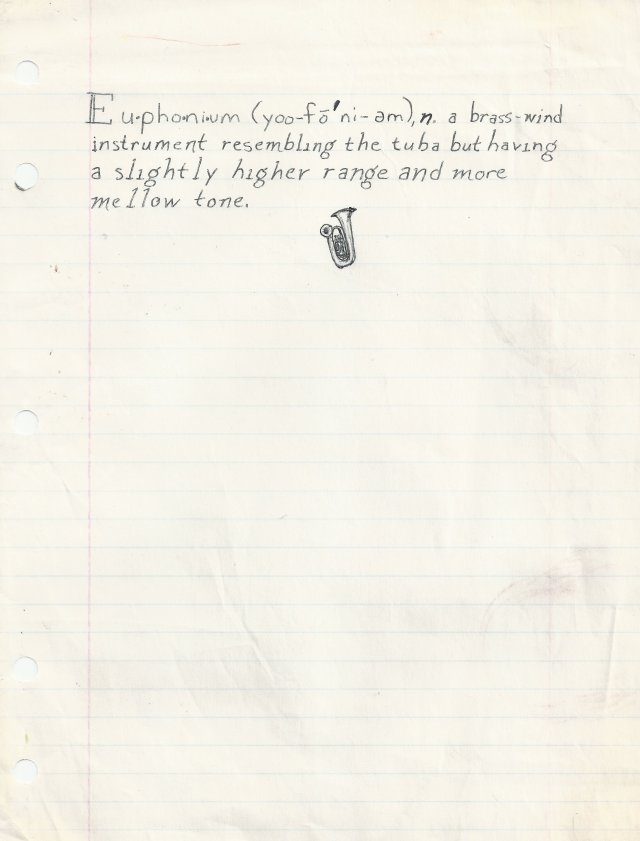 Eu·pho·ni·um (yoo-fō′ni-əm), n. a brass-wind
instrument resembling the tuba but having
a slightly higher range and more
mellow tone.